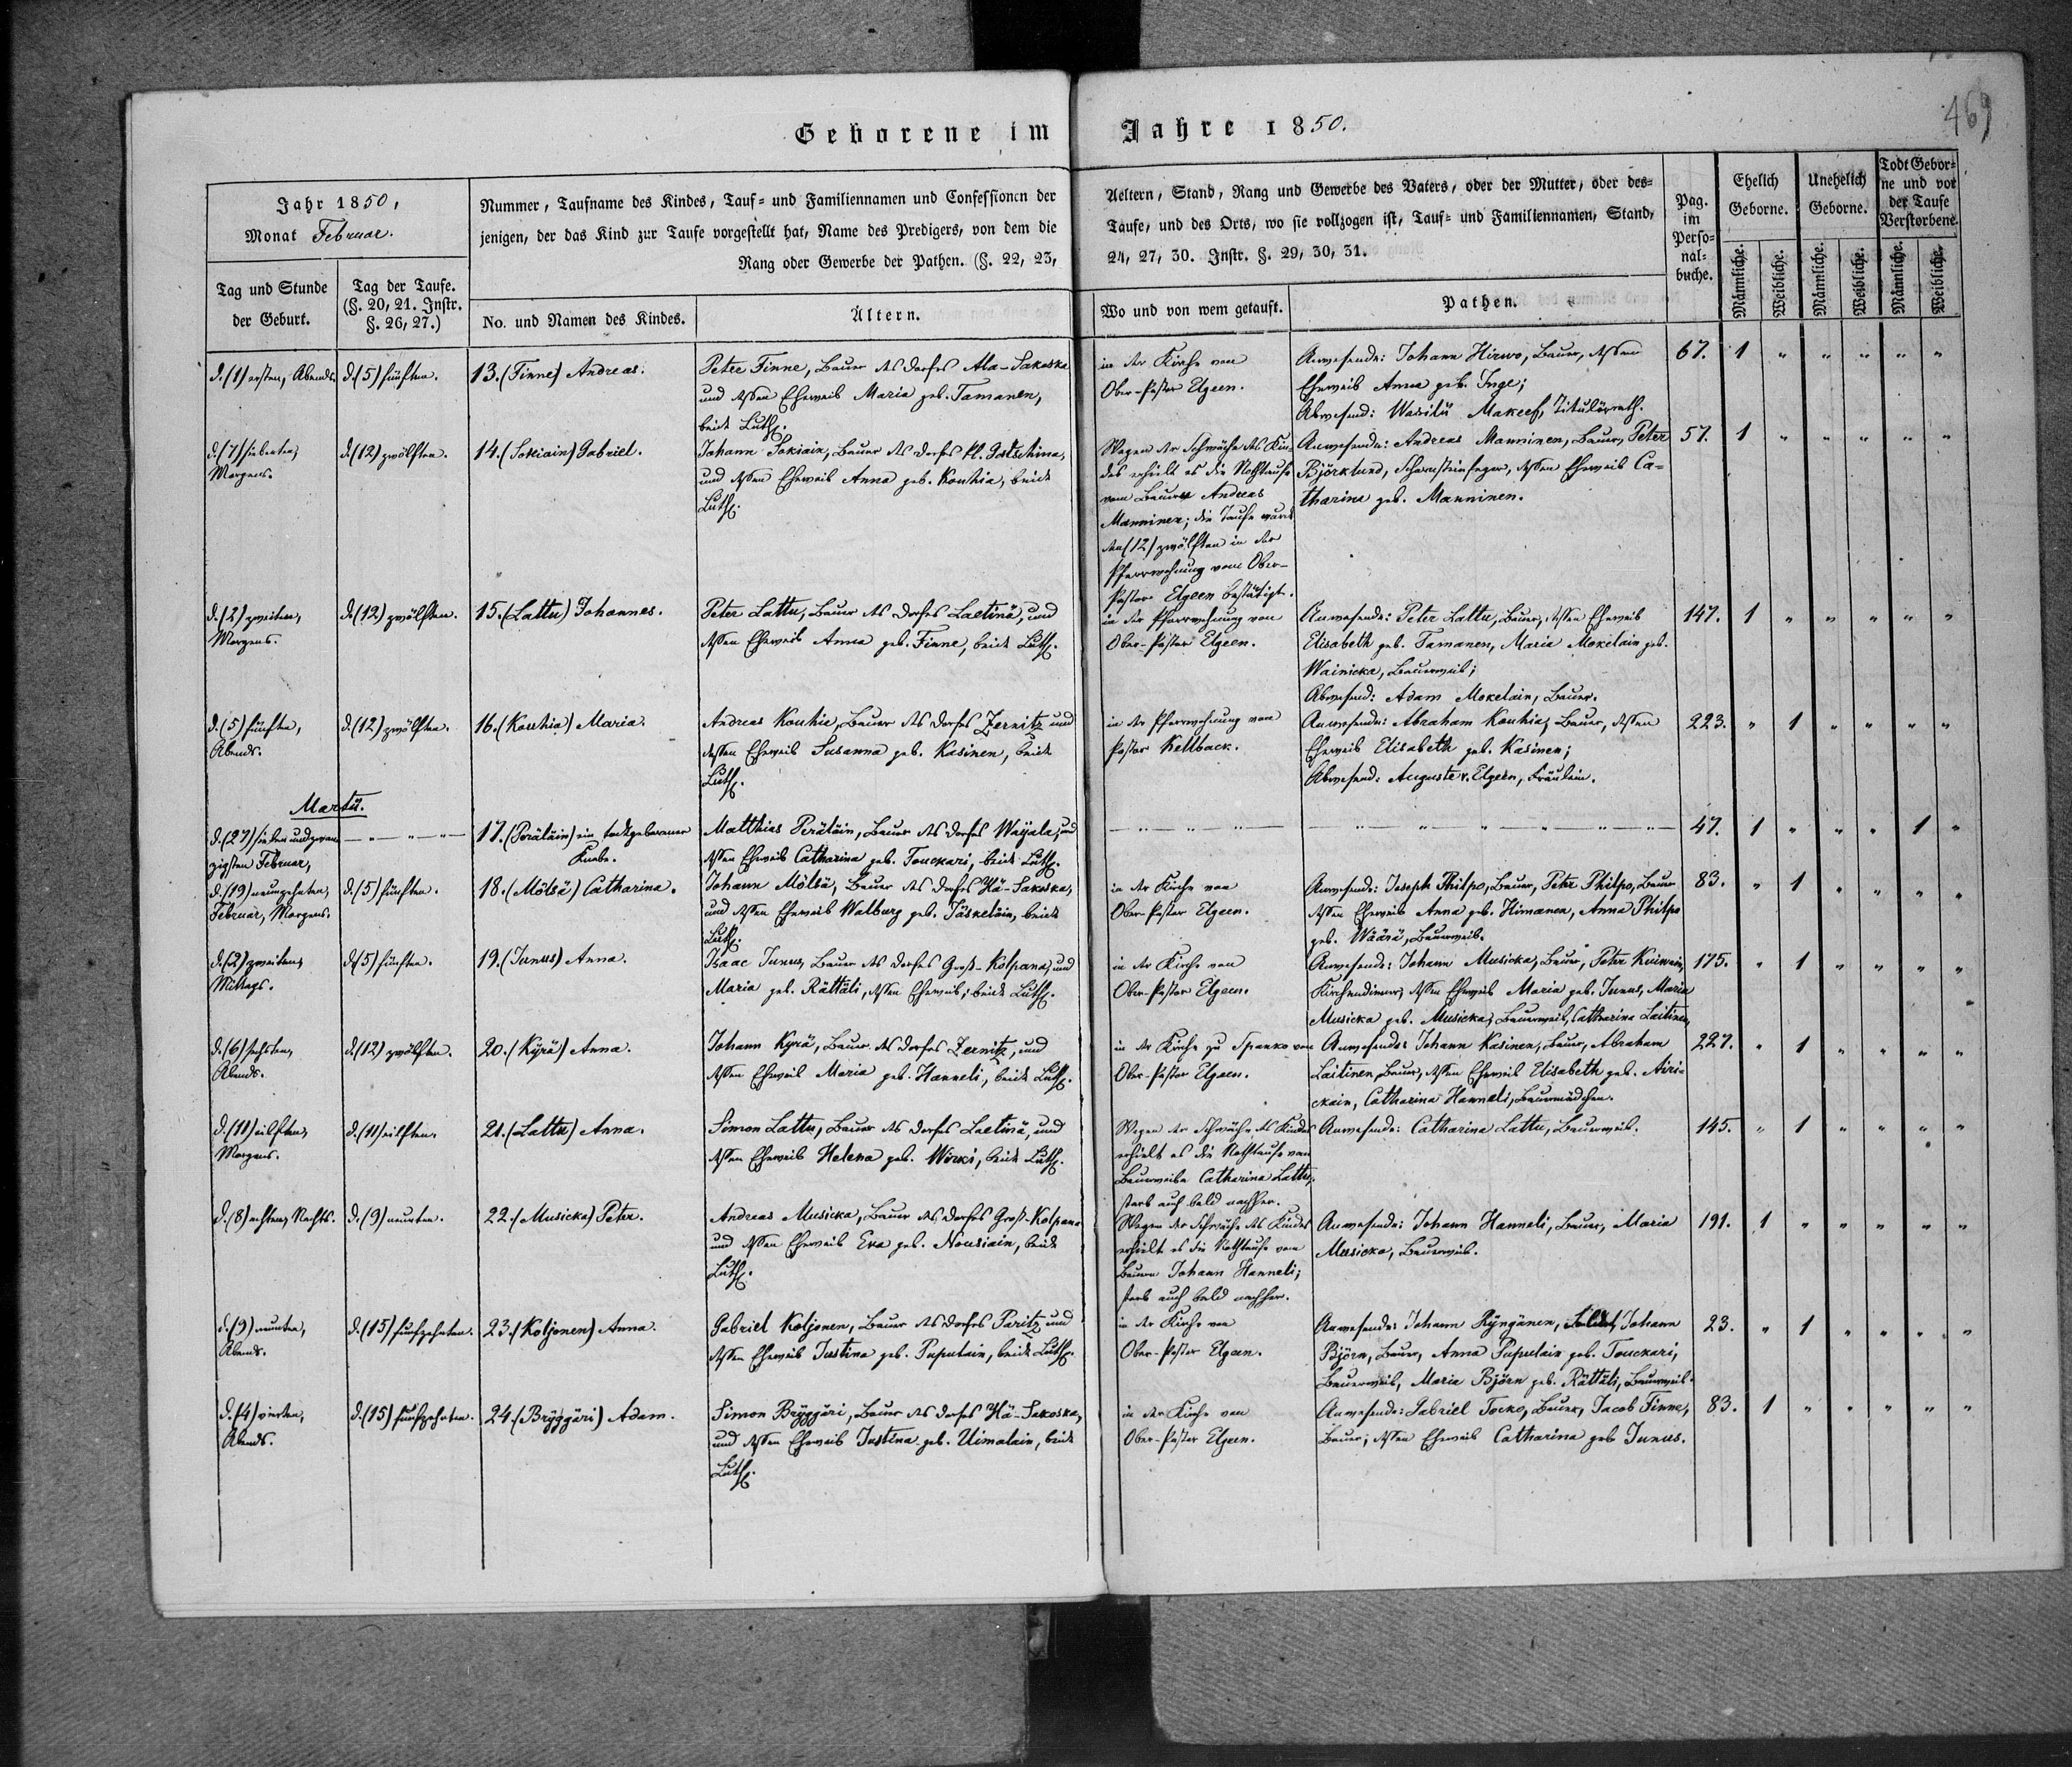 469
Geborene im Jahre 1850.
Jahr 1850,
Monat Februar.
Nummer, Taufname des Kindes, Tauf= und Familiennamen und Confessionen der
jenigen, der das Kind zur Taufe vorgestellt hat, Name des Predigers, von dem die
Rang oder Gewerbe der Pathen. (§. 22, 23,
Aeltern, Stand, Rang und Gewerbe des Vaters, oder der Mutter, oder des=
Taufe, und des Orts, wo sie vollzogen ist, Tauf= und Familiennamen, Stand,
24, 27, 30. Instr. §. 29, 30, 31.
Pag.
im
Perso=
nal=
buche.
Ehelich
Geborne.
Unehelich
Geborne.
Todt Gebor=
ne und vor
der Taufe
Verstorbene.
Männliche.
Weibliche.
Männliche.
Weibliche.
Männliche.
Weibliche.
Tag und Stunde
der Geburt.
Tag der Taufe.
(§. 20, 21. Instr.
§. 26, 27.)
No. und Namen des Kindes.
Ältern.
Wo und von wem getauft.
Pathen.
d. (1) ersten, Abends.
d. (5) fünften.
13. (Finne) Andreas.
Peter Finne, Bauer des Dorfes Ala-Sakoska
und dessen Eheweib Maria geb. Tamanen,
beide Luth.
in der Kirche von
Ober-Pastor Elgeen.
Anwesende: Johann Hirwo, Bauer, dessen
Eheweib Anna geb. Inge;
Abwesend: Wasilii Makeef, Titulärrath.
67. 1 " " " " "
d. (7) siebenten,
Morgens.
d. (12) zwölften.
14. (Sokiain) Gabriel.
Johann Sokiain, Bauer des Dorfes kl. Gatschina,
und dessen Eheweib Anna geb. Kouhia, beide
Luth.
Wegen der Schwäche des Kin-
des erhielt es die Nothtaufe
vom Bauern Andreas
Manninen; die Taufe ward
den (12) zwölften in der
Pfarrwohnung vom Ober-
Pastor Elgeen bestätigt.
Anwesende: Andreas Manninen, Bauer, Peter
Björklund, Schornsteinfeger, dessen Eheweib Ca-
tharina geb. Manninen.
57. 1 " " " " "
d. (2) zweiten,
Morgens.
d. (12) zwölften.
15. (Lattu) Johannes.
Peter Lattu, Bauer des Dorfes Laetinä, und
dessen Eheweib Anna geb. Finne, beide Luth.
in der Pfarrwohnung von
Ober-Pastor Elgeen.
Anwesende: Peter Lattu, Bauer, dessen Eheweib
Elisabeth geb. Tamanen, Maria Mokelain geb.
Wainicka, Bauerweib;
Abwesend: Adam Mokelain, Bauer.
147. 1 " " " " "
d. (5) fünften,
Abends.
d. (12) zwölften.
16. (Kouhia) Maria.
Andreas Kouhia, Bauer des Dorfes Zernitz und
dessen Eheweib Susanna geb. Kasinen, beide
Luth.
in der Pfarrwohnung von
Pastor Kellback.
Anwesende: Abraham Kouhia, Bauer, dessen
Eheweib Elisabeth geb. Kasinen;
Abwesend: Auguste v. Elgeen, Fräulein.
223. " 1 " " " "
Martii.
d. (27) siebenundzwan-
zigsten Februar,
17. (Perälain) ein todtgeborner
Knabe.
Matthias Perälain, Bauer des Dorfes Wayala, und
dessen Eheweib Catharina geb. Touckari, beide Luth.
47. 1 " " " 1 "
d. (19) neunzehnten,
Februar, Morgens.
d. (5) fünften.
18. (Mölsä) Catharina.
Johann Mölsä, Bauer des Dorfes Hä-Sakoska,
und dessen Eheweib Walburg geb. Jäskeläin, beide
Luth.
in der Kirche von
Ober-Pastor Elgeen.
Anwesende: Joseph Philpo, Bauer, Peter Philpo, Bauer
dessen Eheweib Anna geb. Himanen, Anna Philpo
geb. Wäärä, Bauerweib.
83. " 1 " " " "
d. (2) zweiten,
Mittags.
d. (5) fünften.
19. (Junus) Anna.
Isaac Junus, Bauer des Dorfes Groß-Kolpana, und
Maria geb. Rättäli, dessen Eheweib, beide Luth.
in der Kirche von
Ober-Pastor Elgeen.
Anwesende: Johann Musicka, Bauer, Peter Kuiwain,
Kirchendiener, dessen Eheweib Maria geb. Junus, Maria
Musicka geb. Musicka, Bauerweib, Catharina Laitinen,
175. " 1 " " " "
d. (6) sechsten,
Abends.
d. (12) zwölften.
20. (Kyrä) Anna.
Johann Kyrä, Bauer des Dorfes Zernitz, und
dessen Eheweib Maria geb. Hanneli, beide Luth.
in der Kirche zu Spanko von
Ober-Pastor Elgeen.
Anwesende: Johann Kasinen, Bauer, Abraham
Laitinen, Bauer, dessen Eheweib Elisabeth geb. Airi-
ckain, Catharina Hanneli, Bauermädchen.
227. " 1 " " " "
d. (11) eilften,
Morgens.
d. (11) eilften.
21. (Lattu) Anna.
Simon Lattu, Bauer des Dorfes Laetinä, und
dessen Eheweib Helena geb. Wirki, beide Luth.
Wegen der Schwäche des Kindes
erhielt es die Nothtaufe vom
Bauerweibe Catharina Lattu,
starb auch bald nachher.
Anwesende: Catharina Lattu, Bauerweib.
145. " 1 " " " "
d. (8) achten, Nachts.
d. (9) neunten.
22. (Musicka) Peter.
Andreas Musicka, Bauer des Dorfes Groß-Kolpana
und dessen Eheweib Eva geb. Nousiain, beide
Luth.
Wegen der Schwäche des Kindes
erhielt es die Nothtaufe vom
Bauern Johann Hanneli;
starb auch bald nachher.
Anwesende: Johann Hanneli, Bauer, Maria
Musicka, Bauerweib.
191. 1 " " " " "
d. (9) neunten,
Abends.
d. (15) fünfzehnten.
23. (Koljonen) Anna.
Gabriel Koljonen, Bauer des Dorfes Paritz und
dessen Eheweib Justina geb. Puputain, beide Luth.
in der Kirche von
Ober-Pastor Elgeen.
Anwesende: Johann Ryngänen, Soldat, Johann
Björn, Bauer, Anna Puputain geb. Touckari,
Bauerweib, Maria Björn geb. Rättäli, Bauerweib.
23. " 1 " " " "
d. (4) vierten,
Abends.
d. (15) fünfzehnten.
24. (Bryggäri) Adam.
Simon Bryggäri, Bauer des Dorfes Hä-Sakoska,
und dessen Eheweib Justina geb. Uimalain, beide
Luth.
in der Kirche von
Ober-Pastor Elgeen.
Anwesende: Gabriel Tocko, Bauer, Jacob Finne,
Bauer; dessen Eheweib Catharina geb Junus.
83. 1 " " " " "